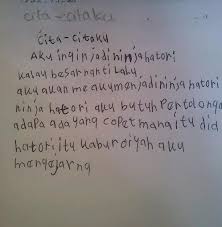 cita-citaku
Cita-Citaku
Aku ingin jadi ninja hatori
kalau besar nanti Laku
aku akan me akumenjadi ninja hatori
ninja hatori aku butuh Pertolonga
adapa ada yang copet mana itu did
hatori itu kabur diyah aku
mengejarng